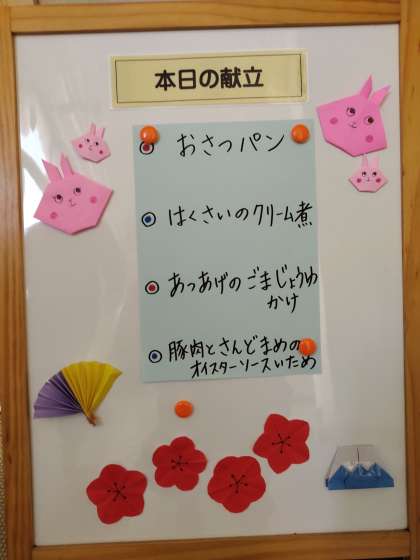 本日の献立
おさつパン
はくさいのクリーム煮
あつあげのごまじょうゆ
かけ
豚肉とさんどまめの
オイスターソースいため